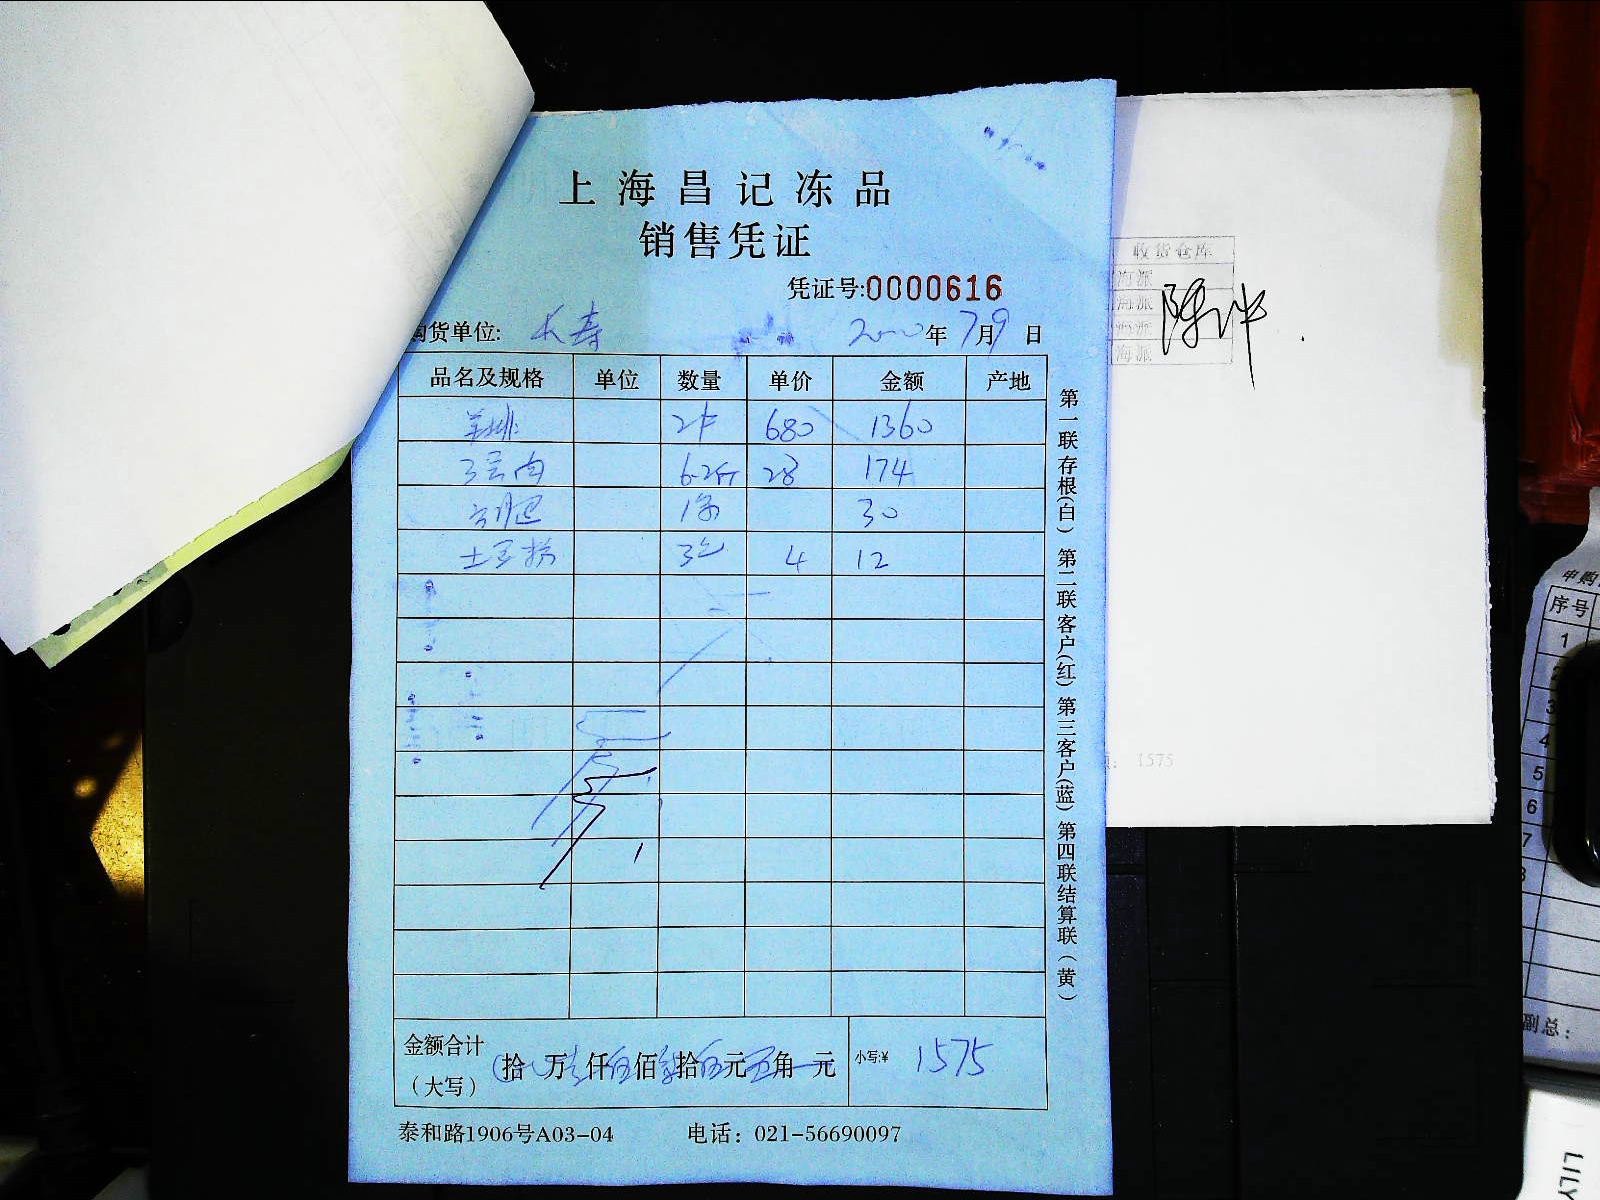 上海昌记冻品
销售凭证
凭证号:0000616
购货单位: 长寿 年7月9日
品名及规格 单位 数量 单价 金额 产地
羊排 2件 680 1360
3层肉 6.2斤 28 174
1条 30
土豆粉 3包 4 12
金额合计
(大写)
拾 万 仟 佰 拾 元 角 元
小写:¥ 1575
泰和路1906号A03-04 电话: 021-56690097
第一联存根(白) 第二联客户(红) 第三客户(蓝) 第四联结算联(黄)
收货仓库
海派
海派
海派
1575
申购
序号
1
3
4
5
6
7
副总:
LILY